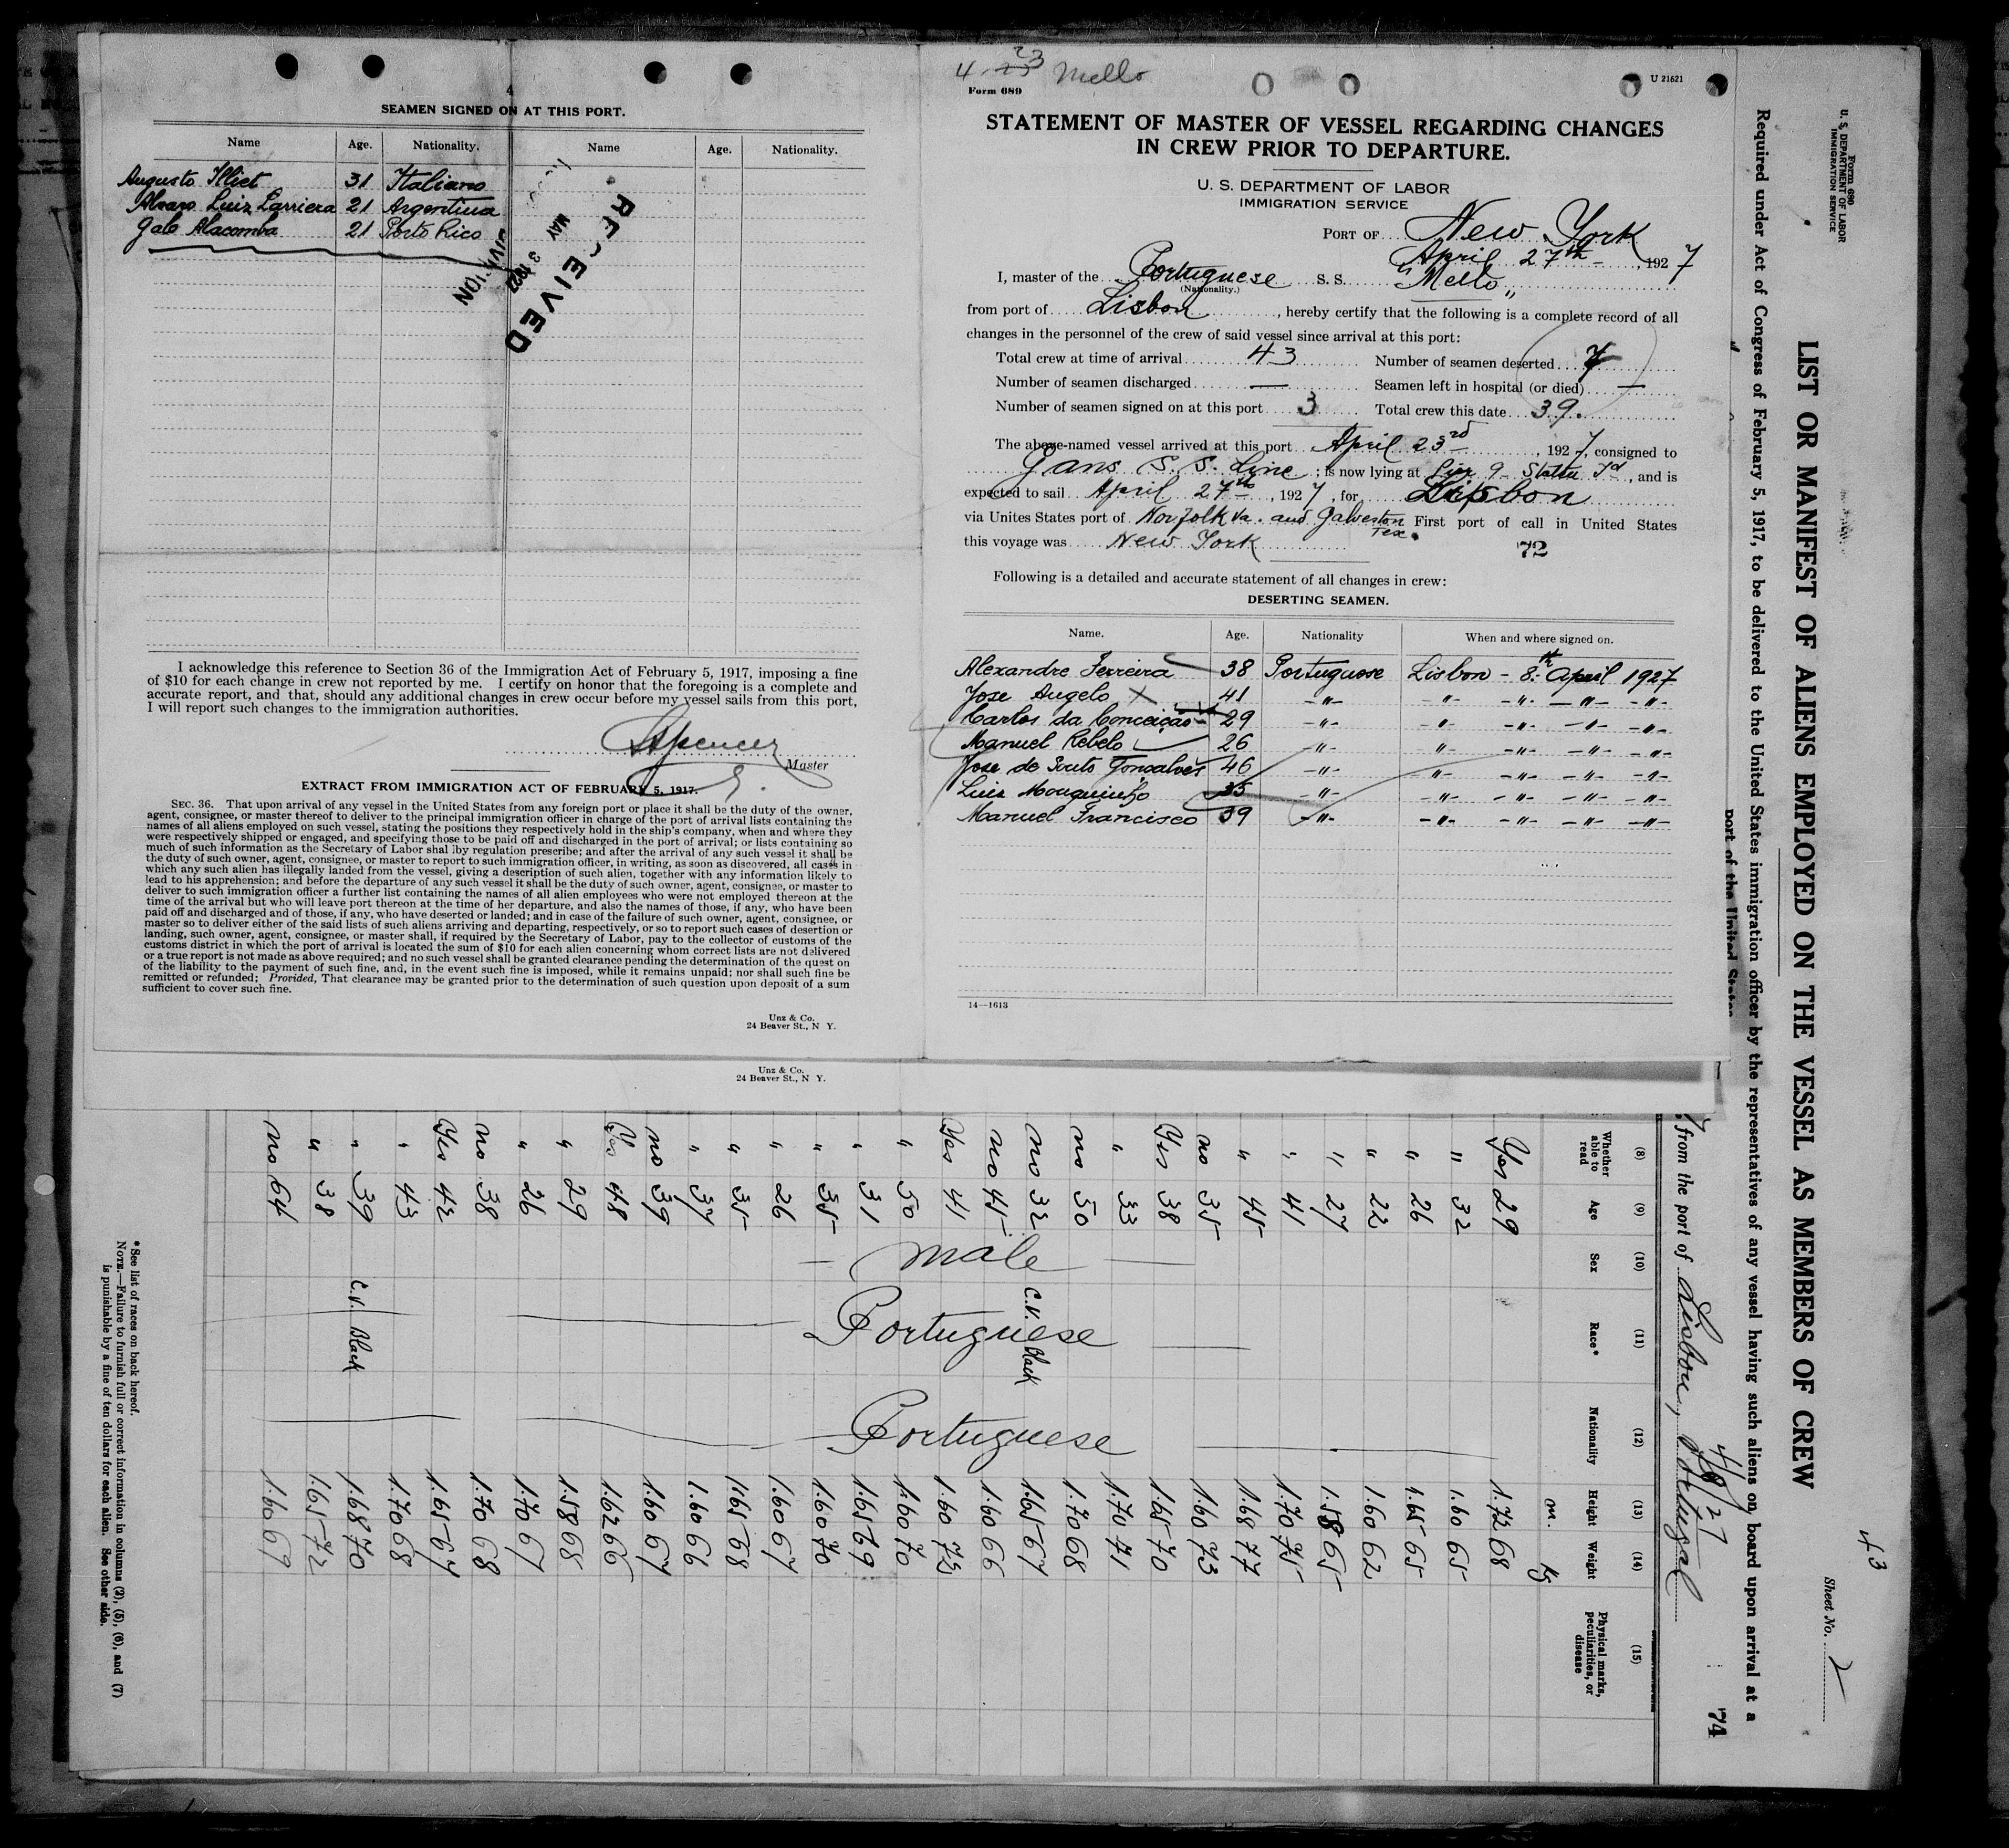 4
SEAMEN SIGNED ON AT THIS PORT.
Name Age. Nationality. Name Age. Nationality.
Augusto Illiet 31 Italiano
Alvaro Luiz Larriera 21 Argentina
Gale Alacomba 21 Porto Rico
RECEIVED
MAY 3 1927
DIVISION
I acknowledge this reference to Section 36 of the Immigration Act of February 5, 1917, imposing a fine
of $10 for each change in crew not reported by me. I certify on honor that the foregoing is a complete and
accurate report, and that, should any additional changes in crew occur before my vessel sails from this port,
I will report such changes to the immigration authorities.
Spencer
Master
EXTRACT FROM IMMIGRATION ACT OF FEBRUARY 5, 1917.
SEC. 36. That upon arrival of any vessel in the United States from any foreign port or place it shall be the duty of the owner,
agent, consignee, or master thereof to deliver to the principal immigration officer in charge of the port of arrival lists containing the
names of all aliens employed on such vessel, stating the positions they respectively hold in the ship's company, when and where they
were respectively shipped or engaged, and specifying those to be paid off and discharged in the port of arrival; or lists containing so
much of such information as the Secretary of Labor shal lby regulation prescribe; and after the arrival of any such vessel it shall be
the duty of such owner, agent, consignee, or master to report to such immigration officer, in writing, as soon as discovered, all cases in
which any such alien has illegally landed from the vessel, giving a description of such alien, together with any information likely to
lead to his apprehension; and before the departure of any such vessel it shall be the duty of such owner, agent, consignee, or master to
deliver to such immigration officer a further list containing the names of all alien employees who were not employed thereon at the
time of the arrival but who will leave port thereon at the time of her departure, and also the names of those, if any, who have been
paid off and discharged and of those, if any, who have deserted or landed; and in case of the failure of such owner, agent, consignee, or
master so to deliver either of the said lists of such aliens arriving and departing, respectively, or so to report such cases of desertion or
landing, such owner, agent, consignee, or master shall, if required by the Secretary of Labor, pay to the collector of customs of the
customs district in which the port of arrival is located the sum of $10 for each alien concerning whom correct lists are not delivered
or a true report is not made as above required; and no such vessel shall be granted clearance pending the determination of the quest on
of the liability to the payment of such fine, and, in the event such fine is imposed, while it remains unpaid; nor shall such fine be
remitted or refunded; Provided, That clearance may be granted prior to the determination of such question upon deposit of a sum
sufficient to cover such fine.
Unz & Co.
24 Beaver St., N Y.
Unz & Co.
24 Beaver St., N Y.
4-23 Mello
Form 689
U 21621
STATEMENT OF MASTER OF VESSEL REGARDING CHANGES
IN CREW PRIOR TO DEPARTURE.
U. S. DEPARTMENT OF LABOR
IMMIGRATION SERVICE
PORT OF New York
April 27th, 1927
I, master of the Portuguese S. S. "Mello"
(Nationality.)
from port of Lisbon, hereby certify that the following is a complete record of all
changes in the personnel of the crew of said vessel since arrival at this port:
Total crew at time of arrival 43 Number of seamen deserted 7
Number of seamen discharged — Seamen left in hospital (or died) —
Number of seamen signed on at this port 3 Total crew this date 39.
The above-named vessel arrived at this port April 23rd, 1927, consigned to
Gans S. S. Line; is now lying at Pier 9 Staten Id, and is
expected to sail April 27th, 1927, for Lisbon
via Unites States port of Norfolk Va. and Galveston Tex. First port of call in United States
this voyage was New York
72
Following is a detailed and accurate statement of all changes in crew:
DESERTING SEAMEN.
Name. Age. Nationality When and where signed on.
Alexandre Ferreira 38 Portuguese Lisbon - 8th April 1927
Jose Angelo X 41 -"- -"- -"- -"- -"-
Carlos da Conceição 29 -"- -"- -"- -"- -"-
Manuel Rebelo 26 -"- -"- -"- -"- -"-
Jose de Souto Gonçalves 46 -"- -"- -"- -"- -"-
Luiz Mouquinho 35 -"- -"- -"- -"- -"-
Manuel Francisco 39 -"- -"- -"- -"- -"-
14—1613
Form 680
U. S. DEPARTMENT OF LABOR
IMMIGRATION SERVICE
43
Sheet No. 2
LIST OR MANIFEST OF ALIENS EMPLOYED ON THE VESSEL AS MEMBERS OF CREW
Required under Act of Congress of February 5, 1917, to be delivered to the United States immigration officer by the representatives of any vessel having such aliens on board upon arrival at a
port of the United States
74
from the port of Lisbon, Portugal
4/8/27
(8) (9) (10) (11) (12) (13) (14) (15)
Whether able to read Age Sex Race* Nationality Height Weight Physical marks, peculiarities, or disease
m. K
Yes 29 1.72 68
" 32 1.60 65
" 26 1.65 65
" 22 1.60 62
" 27 1.58 65
" 41 1.70 75
" 45 1.68 77
no 35 1.60 73
Yes 38 1.65 70
" 33 1.70 71
no 50 1.70 68
no 32 C.V. Black 1.65 67
no 45 1.60 66
Yes 41 male Portuguese Portuguese 1.60 73
" 50 1.60 70
" 31 1.65 69
" 35 1.60 70
" 26 1.60 67
" 35 1.65 68
" 37 1.60 66
no 39 1.60 67
Yes 48 1.62 66
" 29 1.58 68
" 26 1.70 67
no 38 1.70 68
Yes 42 1.65 67
" 43 1.70 68
" 39 C.V. Black 1.68 70
" 38 1.65 72
no 64 1.60 69
* See list of races on back hereof.
NOTE.—Failure to furnish full or correct information in columns (2), (5), (6), and (7)
is punishable by a fine of ten dollars for each alien. See other side.